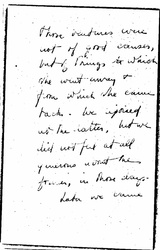 those ventures were
not of good causes,
but of things to which
she went away &
from which she came
back. We rejoiced
in the latter, but we
did not feel at all
generous about the
former, in those days.
Later we came